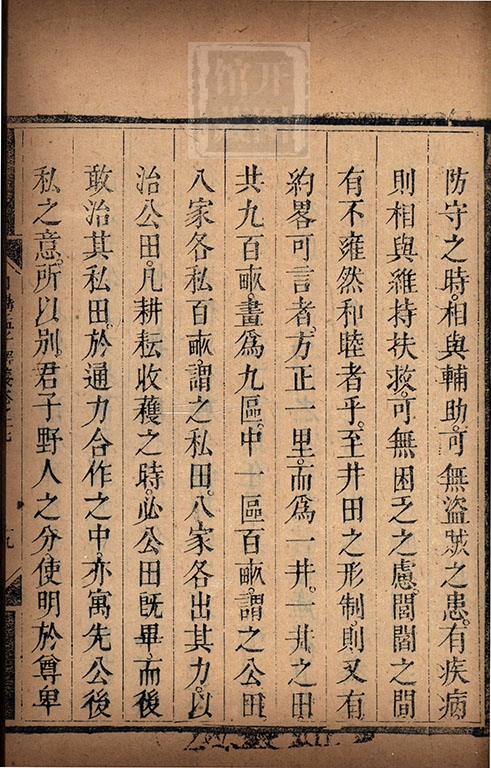 防守之時。相與輔助。可無盜賊之患。有疾病
則相與維持扶救。可無困乏之慮。閭閻之間
有不雍然和睦者乎。至井田之形制。則又有
約畧可言者。方正一里。而爲一井。一井之田
共九百畞。畫爲九區。中一區百畞。謂之公田
八家各私百畞。謂之私田。八家各出其力。以
治公田。凡耕耘收穫之時。必公田旣畢。而後
敢治其私田。於通力合作之中。亦寓先公後
私之意。所以別君子野人之分。使明於尊卑